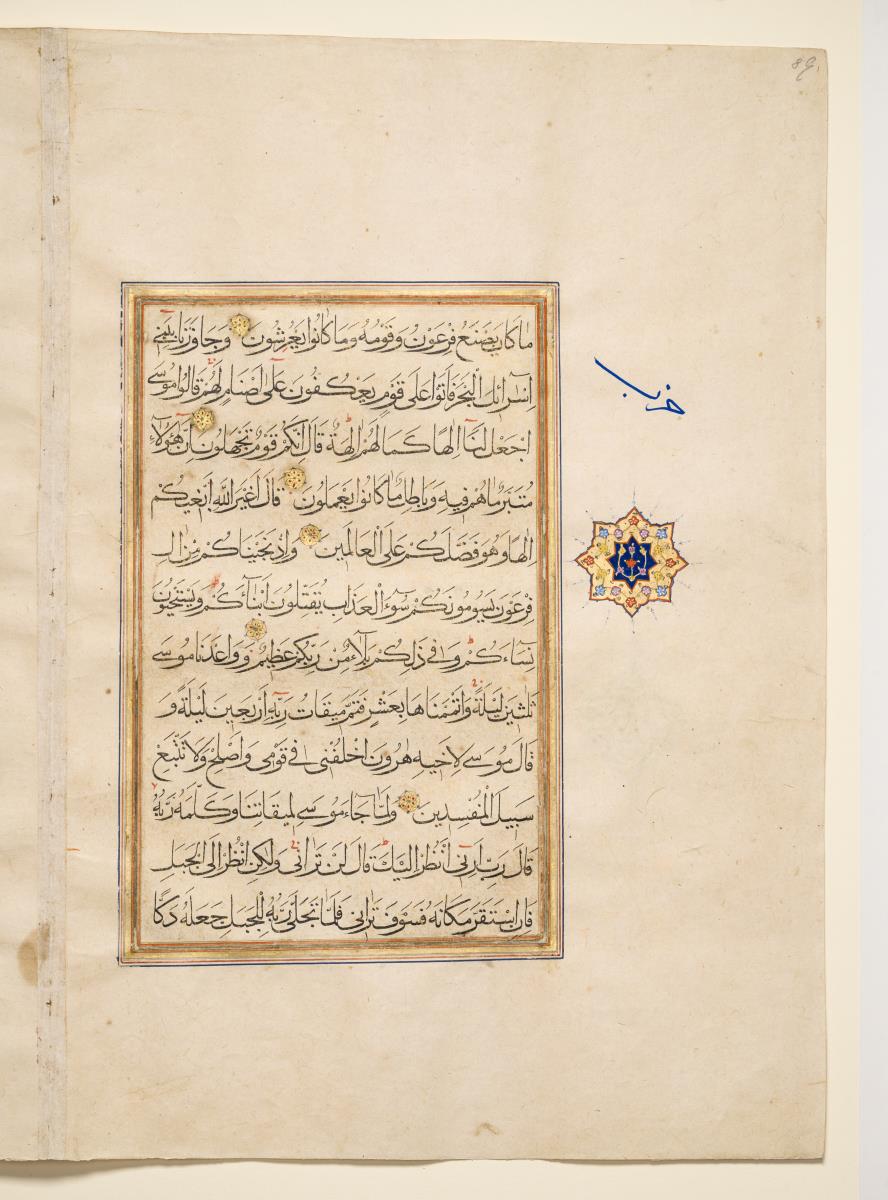 89
مَا كَانَ يَصْنَعُ فِرْعَوْنُ وَقَوْمُهُ وَمَا كَانُوا يَعْرِشُونَ وَجَاوَزْنَا بِبَنِي
إِسْرَائِلَ الْبَحْرَ فَأَتَوْا عَلَى قَوْمٍ يَعْكُفُونَ عَلَى أَصْنَامٍ لَهُمْ قَالُوا يَا مُوسَى
اجْعَلْ لَنَا إِلَهًا كَمَا لَهُمْ آلِهَةٌ قَالَ إِنَّكُمْ قَوْمٌ تَجْهَلُونَ إِنَّ هَؤُلَاءِ
مُتَبَّرٌ مَا هُمْ فِيهِ وَبَاطِلٌ مَا كَانُوا يَعْمَلُونَ قَالَ أَغَيْرَ اللَّهِ أَبْغِيكُمْ
إِلَهًا وَهُوَ فَضَّلَكُمْ عَلَى الْعَالَمِينَ وَإِذْ نَجَّيْنَاكُمْ مِنْ آلِ
فِرْعَوْنَ يَسُومُونَكُمْ سُوءَ الْعَذَابِ يُقَتِّلُونَ أَبْنَاءَكُمْ وَيَسْتَحْيُونَ
نِسَاءَكُمْ وَفِي ذَلِكُمْ بَلَاءٌ مِنْ رَبِّكُمْ عَظِيمٌ وَوَاعَدْنَا مُوسَى
ثَلَثِينَ لَيْلَةً وَأَتْمَمْنَاهَا بِعَشْرٍ فَتَمَّ مِيقَاتُ رَبِّهِ أَرْبَعِينَ لَيْلَةً وَ
قَالَ مُوسَى لِأَخِيهِ هَرُونَ اخْلُفْنِي فِي قَوْمِي وَأَصْلِحْ وَلَا تَتَّبِعْ
سَبِيلَ الْمُفْسِدِينَ وَلَمَّا جَاءَ مُوسَى لِمِيقَاتِنَا وَكَلَّمَهُ رَبُّهُ
قَالَ رَبِّ أَرِنِي أَنْظُرْ إِلَيْكَ قَالَ لَنْ تَرَانِي وَلَكِنِ انْظُرْ إِلَى الْجَبَلِ
فَإِنِ اسْتَقَرَّ مَكَانَهُ فَسَوْفَ تَرَانِي فَلَمَّا تَجَلَّى رَبُّهُ لِلْجَبَلِ جَعَلَهُ دَكًّا
حزب